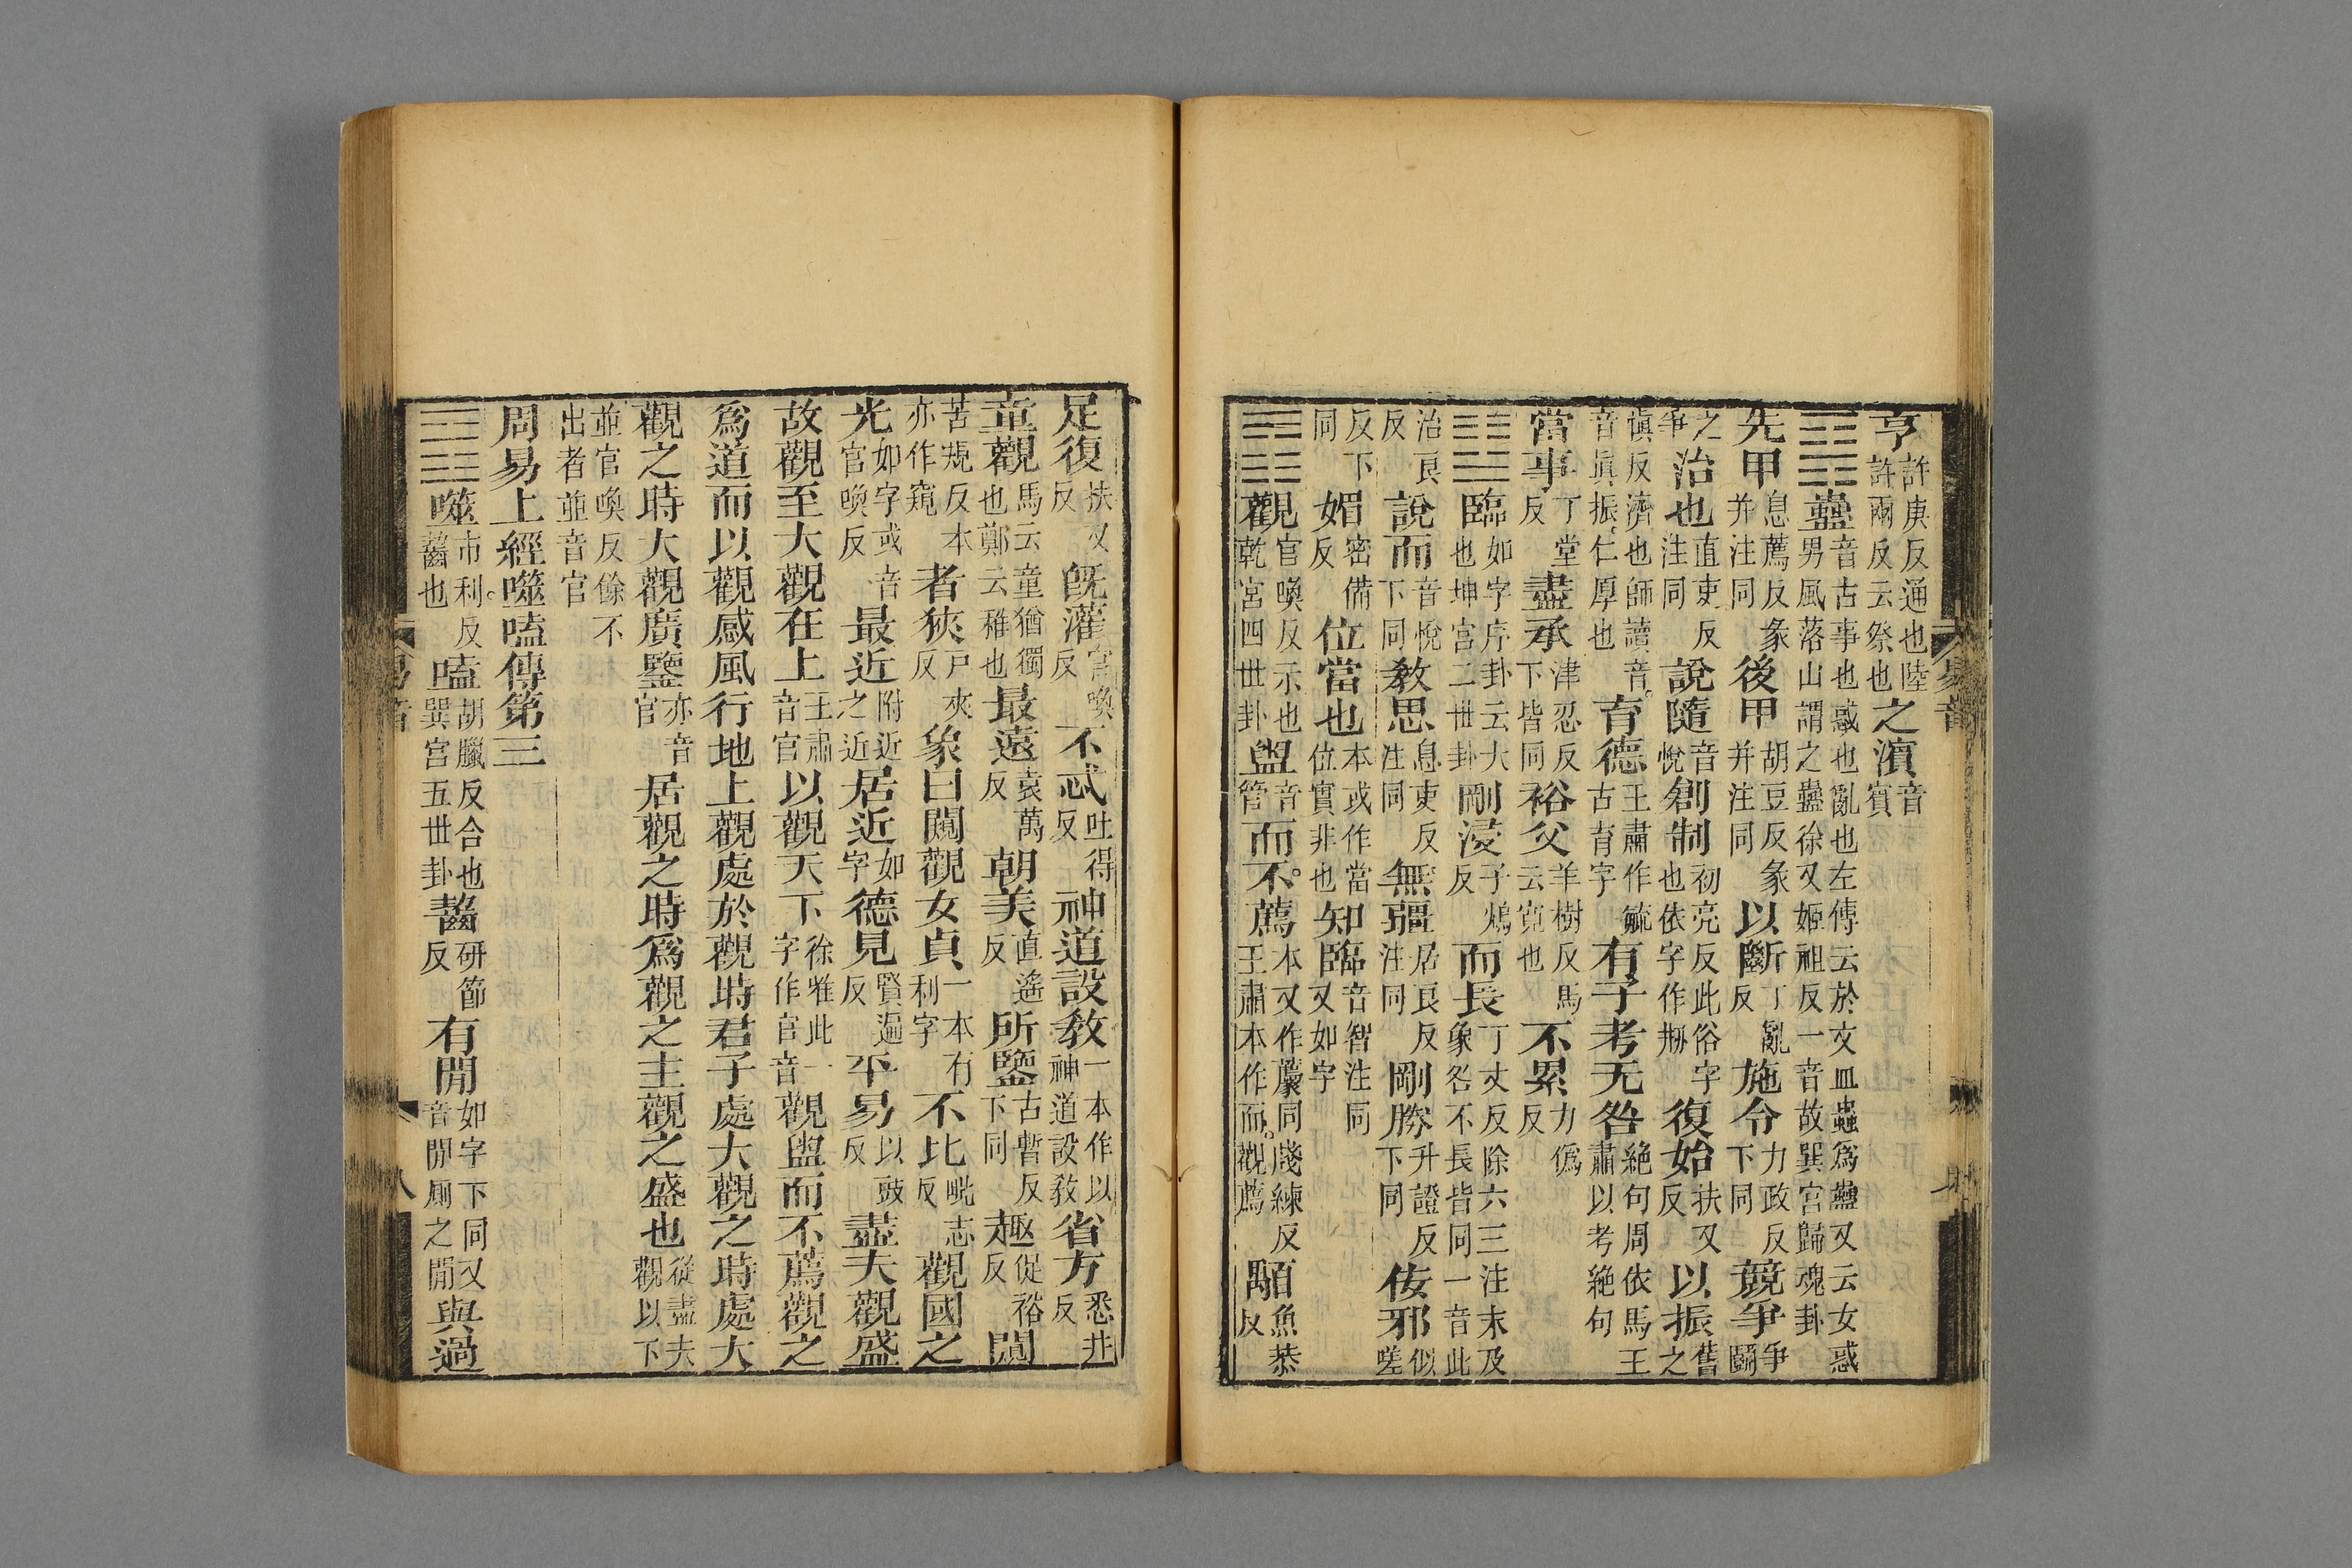 亨許庚反通也陸許兩反云祭也之濱音賓
䷑蠱音古事也惑也亂也左傳云於文皿蟲爲蠱又云女惑男風落山謂之蠱徐又姬祖反一音故巽宮歸魂卦
先甲息薦反彖并注同後甲胡豆反彖并注同以斷丁亂反施令力政反下同競爭爭鬭
之爭治也直吏反注同說隨音悅創制初亮反此俗字也依字作刱復始扶又反以振舊之
愼反濟也師讀音眞振仁厚也育德王肅作毓古育字有子考无咎絶句周依馬王肅以考絶句
當事丁堂反盡承津忍反下皆同裕父羊樹反馬云寬也不累力僞反
䷒臨如字序卦云大也坤宮二世卦剛浸子鴆反而長丁丈反除六三注末及彖咎不長皆同一音此
治良反說而音悅下同教思息吏反注同無疆居良反注同剛勝升證反下同佞邪似嗟
反下同媚密備反位當也本或作當位實非也知臨音智注同又如字
䷓觀官喚反示也乾宮四世卦盥音管而不薦本又作䕬同牋練反王肅本作而觀薦顒魚恭反
足復扶又反旣灌官喚反不忒吐得反神道設教一本作以神道設教省方悉井反
童觀馬云童猶獨也鄭云稚也最遠袁萬反朝美直遙反所鑒古暫反下同趣促裕反闚
苦規反本亦作窺者狹戸夾反象曰闚觀女貞一本有利字不比毗志反觀國之
光如字或音官喚反最近附近之近居近如字德見賢遍反平易以豉反盡夫觀盛
故觀至大觀在上王肅音官以觀天下徐唯此一字作官音觀盥而不薦觀之
爲道而以觀感風行地上觀處於觀時君子處大觀之時處大
觀之時大觀廣鑒亦音官居觀之時爲觀之主觀之盛也從盡夫觀以下
並官喚反餘不出者並音官
周易上經噬嗑傳第三
䷔噬市利反齧也嗑胡臘反合也巽宮五世卦齧研節反有閒如字下同又音閒厠之閒與過